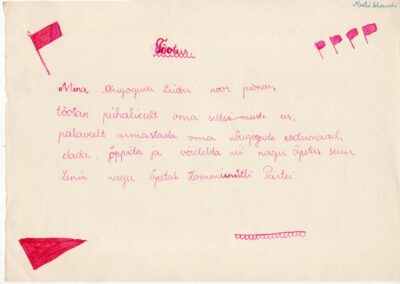 Tõotus
Mina Nõugogude Liidu noor pioneer,
tõotan pühalikult oma seltsimeeste ees,
palavalt armastada oma nõugogude kodumaad,
elada, õppida ja võidelda nii nagu õpetas suur
Lenin nagu õpetab Kommunistli Partei